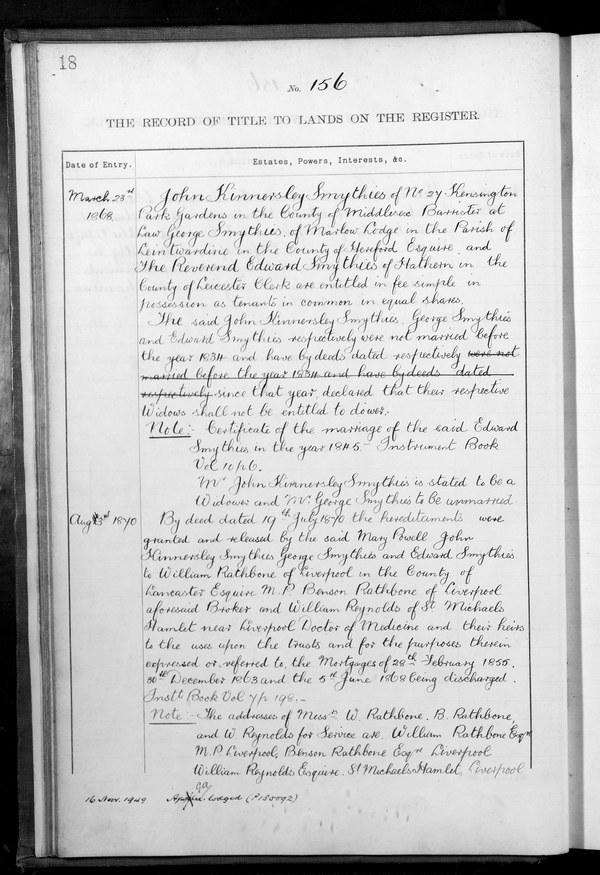 18
No. 156
THE RECORD OF TITLE TO LANDS ON THE REGISTER.
Date of Entry.
Estates, Powers, Interests, &c.
March 23rd
1868
John Kinnersley Smythies of No 27 Kensington
Park Gardens in the County of Middlesex Barrister at
Law George Smythies, of Marlow Lodge in the Parish of
Leintwardine in the County of Hereford Esquire and
The Reverend Edward Smythies of Hathern in the
County of Leicester Clerk are entitled in fee simple in
possession as tenants in common in equal shares.
The said John Kinnersley Smythies, George Smythies
and Edward Smythies respectively were not married before
the year 1834 and have by deeds dated respectively were not
married before the year 1834 and have by deeds dated
respectively since that year, declared that their respective
Widows shall not be entitled to dower.
Note:- Certificate of the marriage of the said Edward
Smythies in the year 1845. - Instrument Book
Vol 10 p 6.
Mr John Kinnersley Smythies is stated to be a
Widower and Mr George Smythies to be unmarried
Aug 3rd 1870
By deed dated 19th July 1870 the hereditaments were
granted and released by the said Mary Powell John
Kinnersley Smythies George Smythies and Edward Smythies
to William Rathbone of Liverpool in the County of
Lancaster Esquire M.P. Benson Rathbone of Liverpool
aforesaid Broker and William Reynolds of St Michaels
Hamlet near Liverpool Doctor of Medicine and their heirs
to the uses upon the trusts and for the purposes therein
expressed or referred to, the Mortgages of 28th February 1855.
30th December 1863 and the 5th June 1868 being discharged.
Instt Book Vol 7 p 198.-
Note:- The addresses of Messrs W. Rathbone. B. Rathbone,
and W Reynolds for Service are William Rathbone Esqre
M.P. Liverpool, Benson Rathbone Esqre Liverpool
William Reynolds Esquire. St Michaels Hamlet, Liverpool
16 Nov. 1949
lodged (P188092)